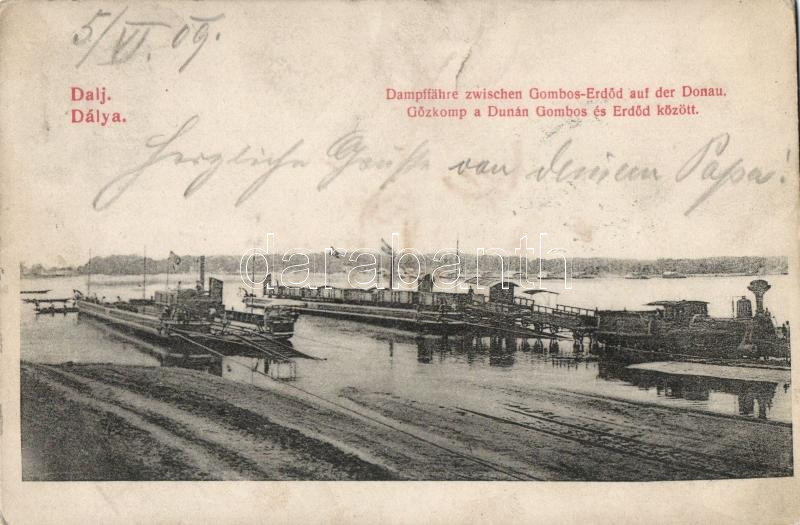 5/VI. 09.
Dalj.
Dálya.
Dampffähre zwischen Gombos-Erdőd auf der Donau.
Gőzkomp a Dunán Gombos és Erdőd között.
Herzliche Grüße von deinem Papa!
darabanth.com